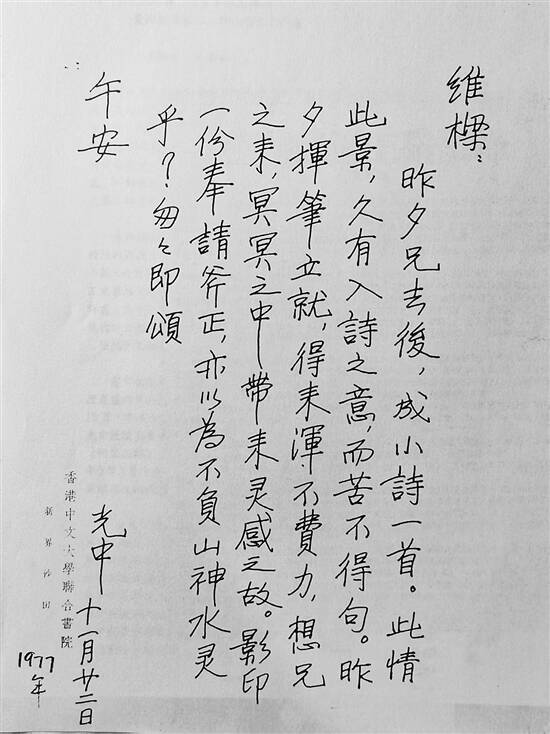 維樑：
昨夕兄去後，成小詩一首。此情
此景，久有入詩之意，而苦不得句。昨
夕揮筆立就，得來渾不費力，想兄
之来，冥冥之中带来灵感之故。影印
一份奉請斧正，亦以為不負山神水灵
乎？匆々即頌
午安
光中 十一月廿二日
1977年
香港中文大學聯合書院
新界沙田